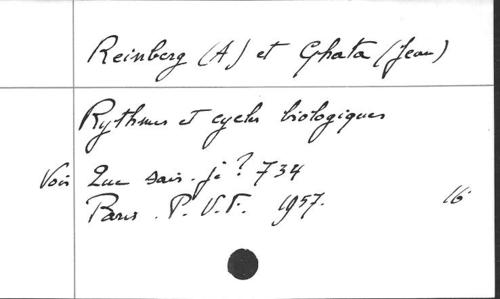 Reinberg (A) et Ghata (Jean)
Rythmes et cycles biologiques
Voir Que sais-je? 734
Paris. P.U.F. 1957. 16